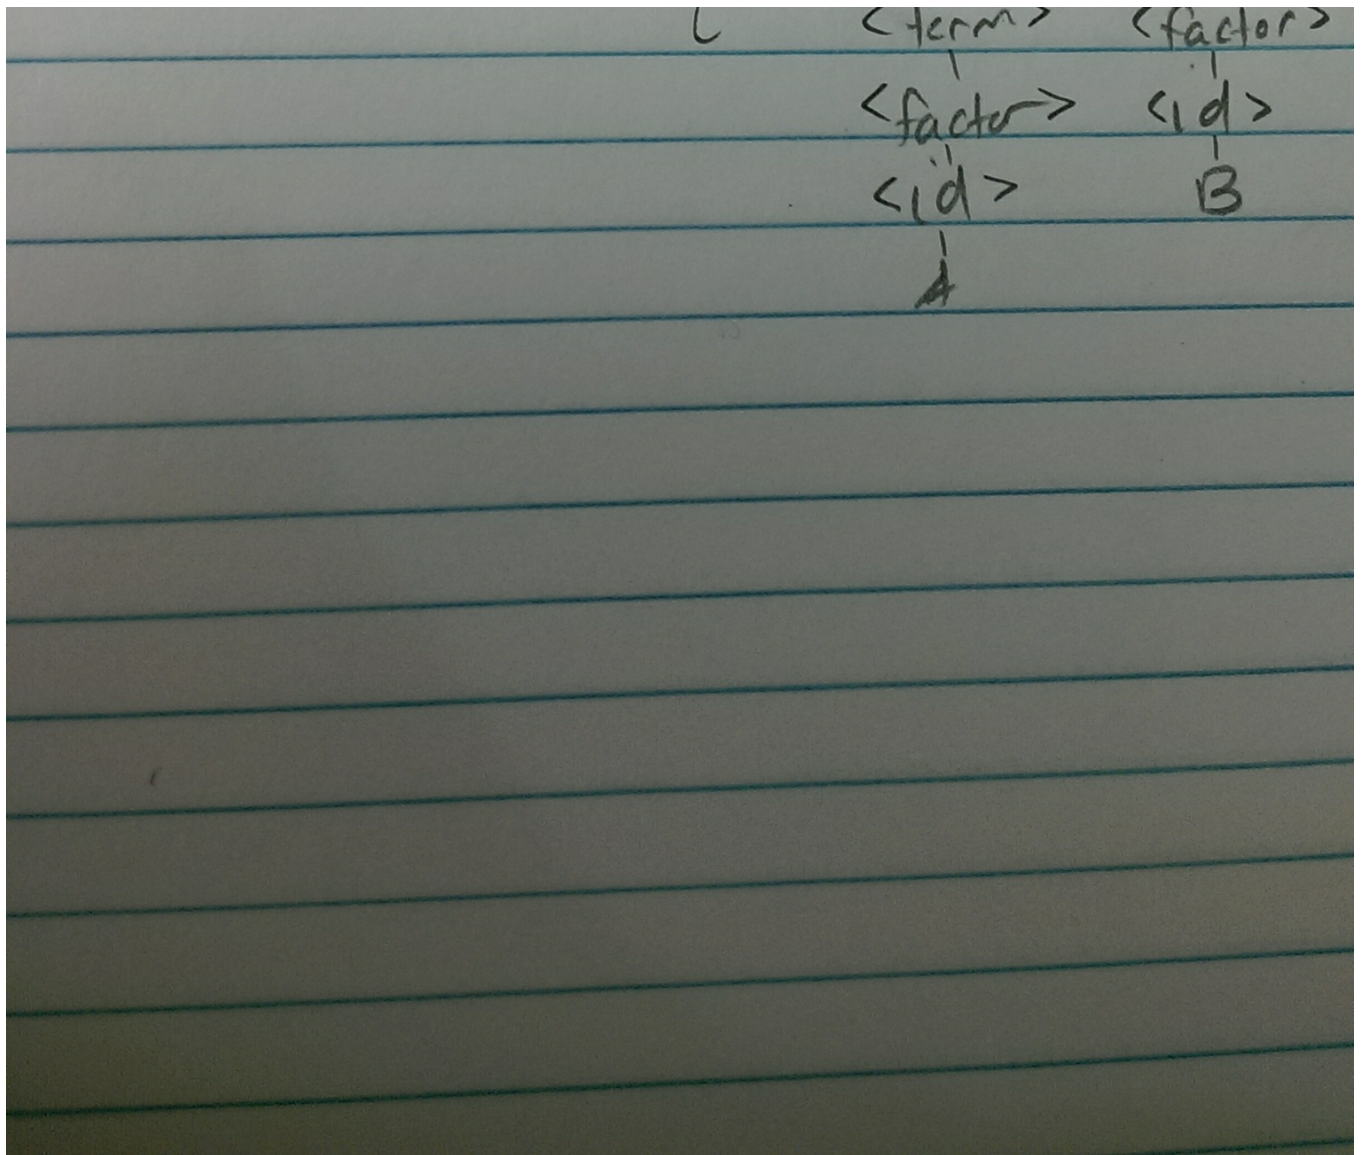 <term> <factor>
<factor> <id>
<id> B
A